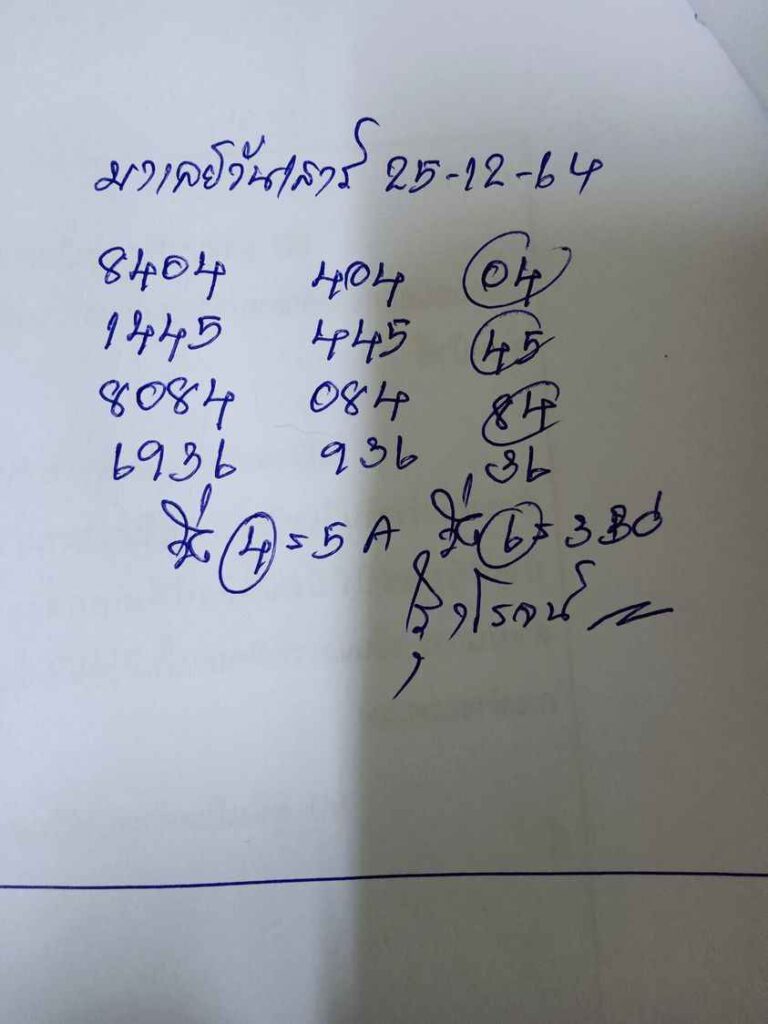 มาเลย์วันเสาร์ 25-12-64
8404 404 04
1445 445 45
8084 084 84
6936 936 36
4 = 5 A 6 = 3